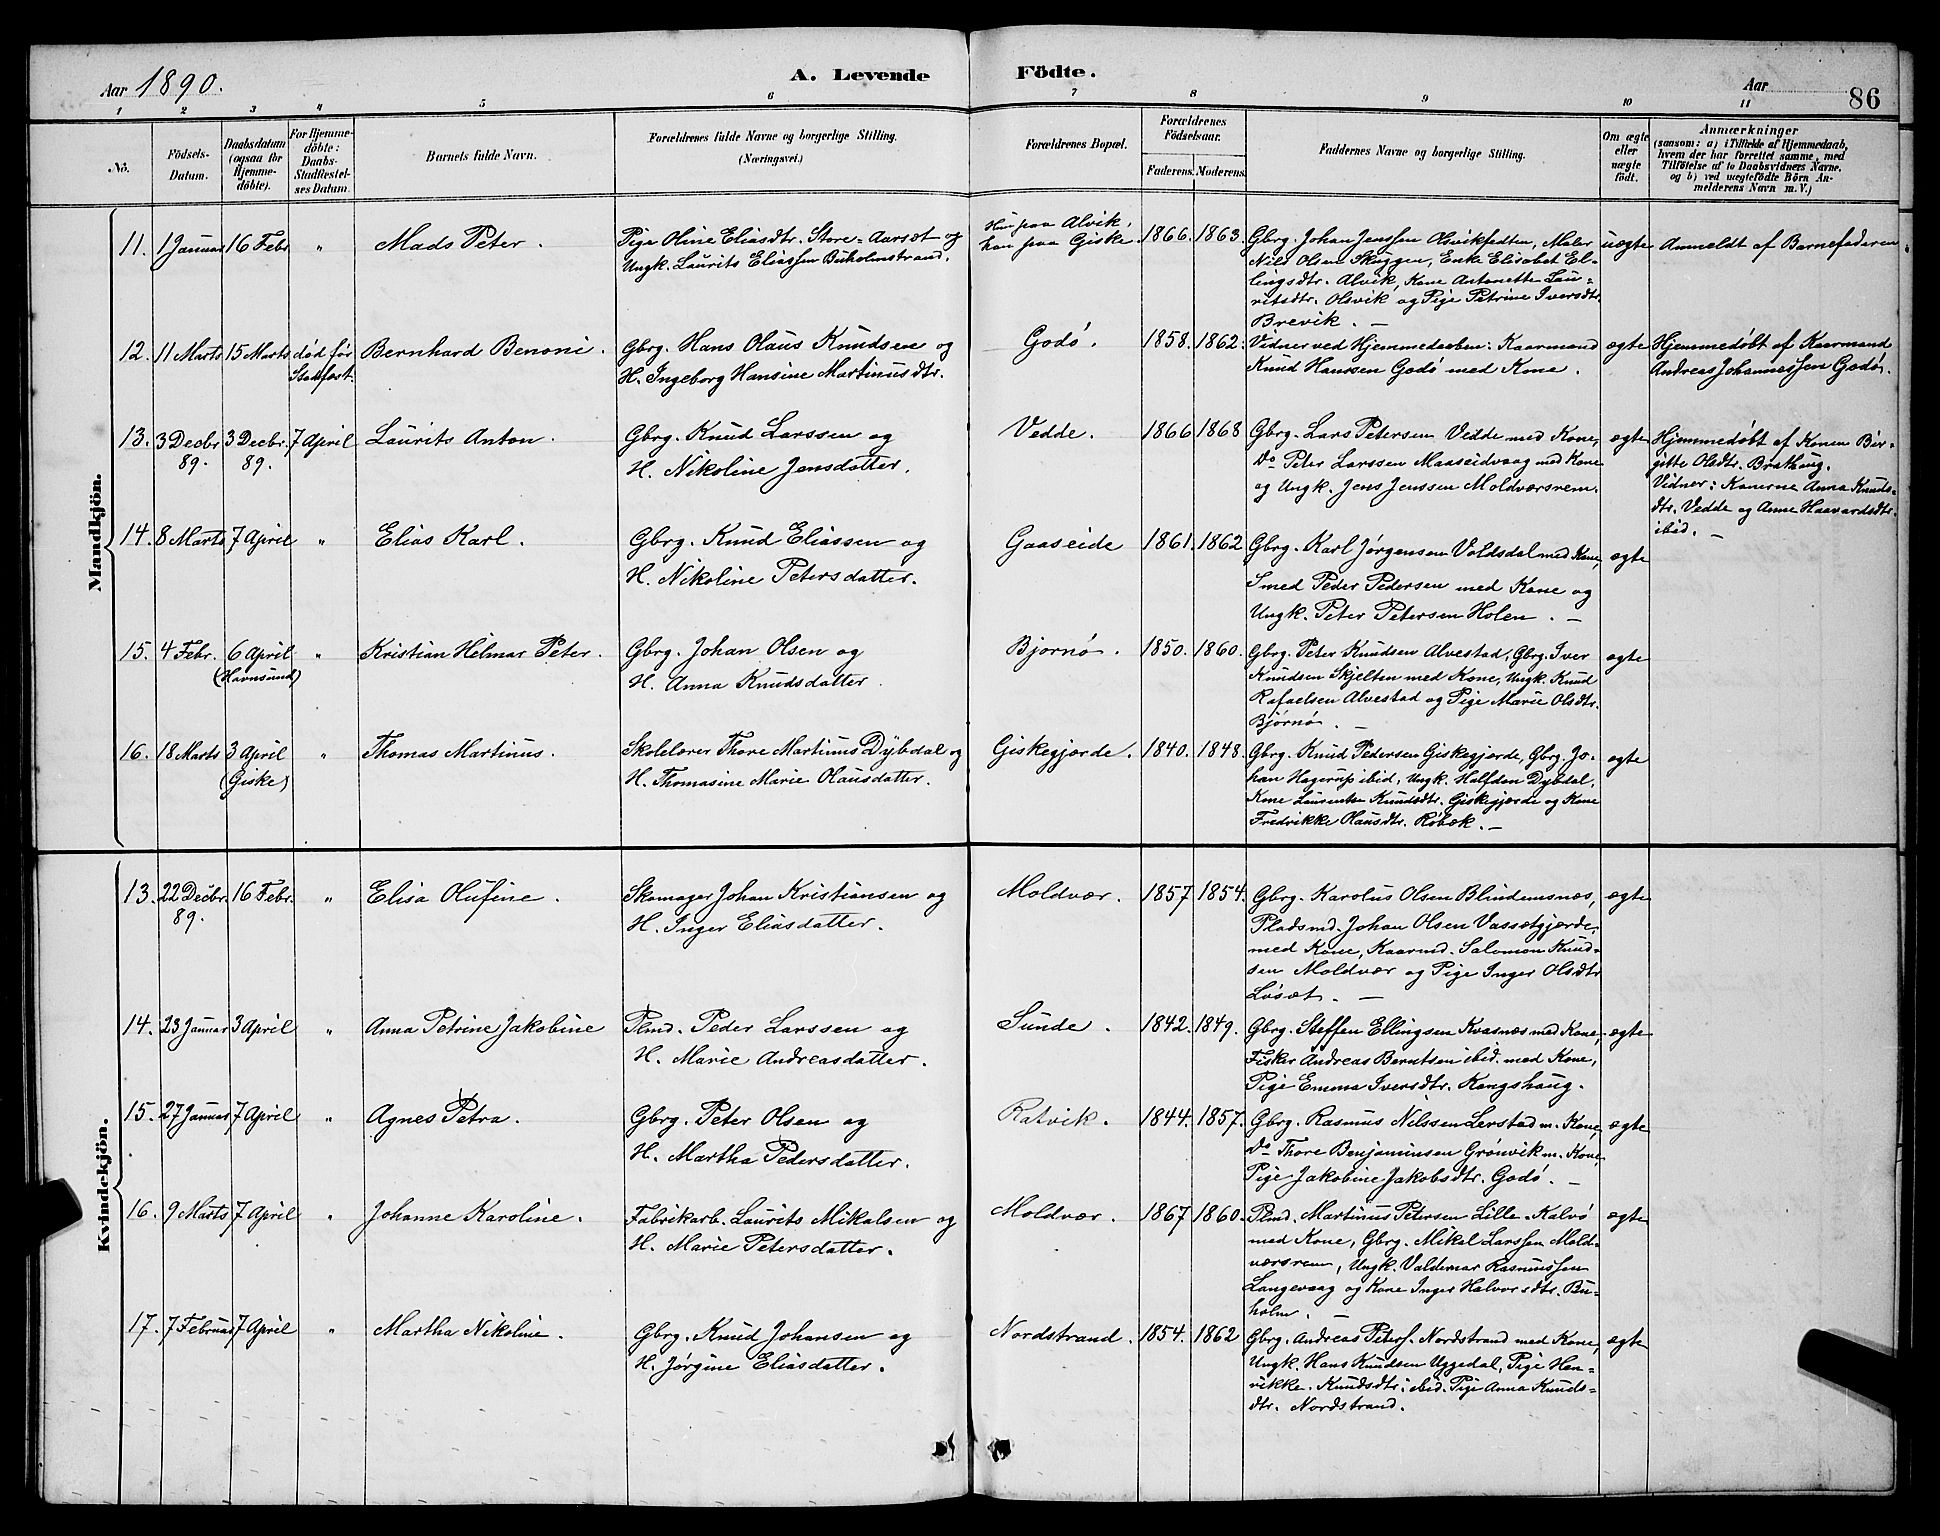 Aar 1890. A. Levende Födte. Aar 86
1 2 3 4 5 6 7 8 9 10 11
No. Födsels-Datum. Daabsdatum (ogsaa for Hjemmedöbte). For Hjemmedöbte: Daabs-Stadfæstelses Datum. Barnets fulde Navn. Forældrenes fulde Navne og borgerlige Stilling. (Næringsvei.) Forældrenes Bopæl. Forældrenes Födselsaar. Faderens. Moderens. Faddernes Navne og borgerlige Stilling. Om ægte eller uægte födt. Anmærkninger (sansom: a) i Tilfælde af Hjemmedaab, hvem der har forrettet samme, med Tilföielse af to Daabsvidners Navne, og b) ved uægtefödte Börn Anmelderens Navn m. V.)
Mandkjön.
11. 1 Januar 16 Febr. " Mads Peter. Pige Oline Eliasdtr. Store-Aarsæt og Hun paa Alvik, 1866. 1863. Gbrg. Johan Jenssen Olsvikfedten, Maler uægte Anmeldt af Barnefaderen
Ungk. Laurits Eliassen Buholmstrand. han paa Giske. Nils Olsen Skuggen, Enke Elisabet El-
lingsdtr. Alvik, Kone Antonette Lau-
ritsdtr. Olsvik og Pige Petrine Iversdtr.
Brevik. —
12. 11 Marts 15 Marts død før Bernhard Benoni. Gbrg. Hans Olaus Knudsen og Godø. 1858. 1862. Vidner ved Hjemmedaaben: Kaarmand ægte Hjemmedøbt af Kaarmand
Stadfæst. H. Ingeborg Hansine Martinusdtr. Knud Hanssen Godø med Kone. Andreas Johannessen Godø.
13. 3 Decbr. 3 Decbr. 7 April Laurits Anton. Gbrg. Knud Larssen og Vedde. 1866 1868 Gbrg. Lars Petersen Vedde med Kone, ægte Hjemmedøbt af Konen Bir-
89. 89. H. Nikoline Jensdatter. Do Peter Larssen Maaseidvaag med Kone gitte Olsdtr. Brathaug.
og Ungk. Jens Jenssen Moldværsrem. Vidner: Konerne Anna Knuds-
dtr. Vedde og Anne Haavardsdtr.
ibid. —
14. 8 Marts 7 April " Elias Karl. Gbrg. Knud Eliassen og Gaaseide 1861. 1862 Gbrg. Karl Jørgensen Voldsdal med Kone, ægte
H. Nikoline Petersdatter. Smed Peder Pedersen med Kone og
Ungk. Peter Petersen Holen. —
15. 4 Febr. 6 April " Kristian Hilmar Peter. Gbrg. Johan Olsen og Bjornø. 1850. 1860. Gbrg. Peter Knudsen Alvestad, Gbrg. Iver ægte
(Havnsund) H. Anna Knudsdatter. Knudsen Skjelten med Kone, Ungk. Knud
Rafaelsen Alvestad og Pige Marie Olsdtr.
Bjørnø. —
16. 18 Marts 3 April " Thomas Martinus. Skolelærer Thore Martinus Dybdal og Giskegjærde. 1840. 1848. Gbrg. Knud Pedersen Giskegjærde, Gbrg. Jo- ægte
(Giske) H. Thomasine Marie Olausdatter. han Hagerup ibid, Ungk. Halfdan Dybdal,
Kone Laurentse Knudsdtr. Giskegjærde og Kone
Fredrikke Olausdtr. Røbæk. —
Kvindekjön.
13. 22 Decbr. 16 Febr. " Elisa Olufine. Skomager Johan Kristiansen og Moldvær. 1857 1854. Gbrg. Karolus Olsen Blindemsnæs, ægte
89. H. Inger Eliasdatter. Pladsmd. Johan Olsen Vassetgjærde,
med Kone, Kaarmd. Salomon Knud-
sen Moldvær og Pige Inger Olsdtr.
Løsæt. —
14. 23 Januar 3 April " Anna Petrine Jakobine Plmd. Peder Larssen og Sunde. 1842. 1849. Gbrg. Steffen Ellingsen Kvasnæs med Kone, ægte
H. Marie Andreasdatter. Fisker Andreas Berntsen ibid. med Kone,
Pige Emma Iversdtr. Kongshaug.
15. 27 Januar 7 April " Agnes Petra. Gbrg. Peter Olsen og Ratvik. 1844. 1857. Gbrg. Rasmus Nilssen Lerstad m. Kone, ægte
H. Martha Pedersdatter. Do Thore Benjaminsen Grønvik m. Kone,
Pige Jakobine Jakobsdtr. Godø. —
16. 9 Marts 7 April " Johanne Karoline. Fabrikarb. Laurits Mikalsen og Moldvær. 1867 1860. Plmd. Martinus Petersen Lille-Kalvø ægte
H. Marie Petersdatter. med Kone, Gbrg. Mikal Larssen Mold-
værsrem, Ungk. Valdemar Rasmussen
Langevaag og Kone Inger Halvorsdtr. Bu-
holm. —
17. 7 Februar 7 April " Martha Nikoline. Gbrg. Knud Johansen og Nordstrand. 1854. 1862 Gbrg. Andreas Peters. Nordstrand med Kone, ægte
H. Jørgine Eliasdatter. Ungk. Hans Knudsen Uggedal, Pige Hen-
rikke Knudsdtr. ibid. Pige Anna Knuds-
dtr. Nordstrand.